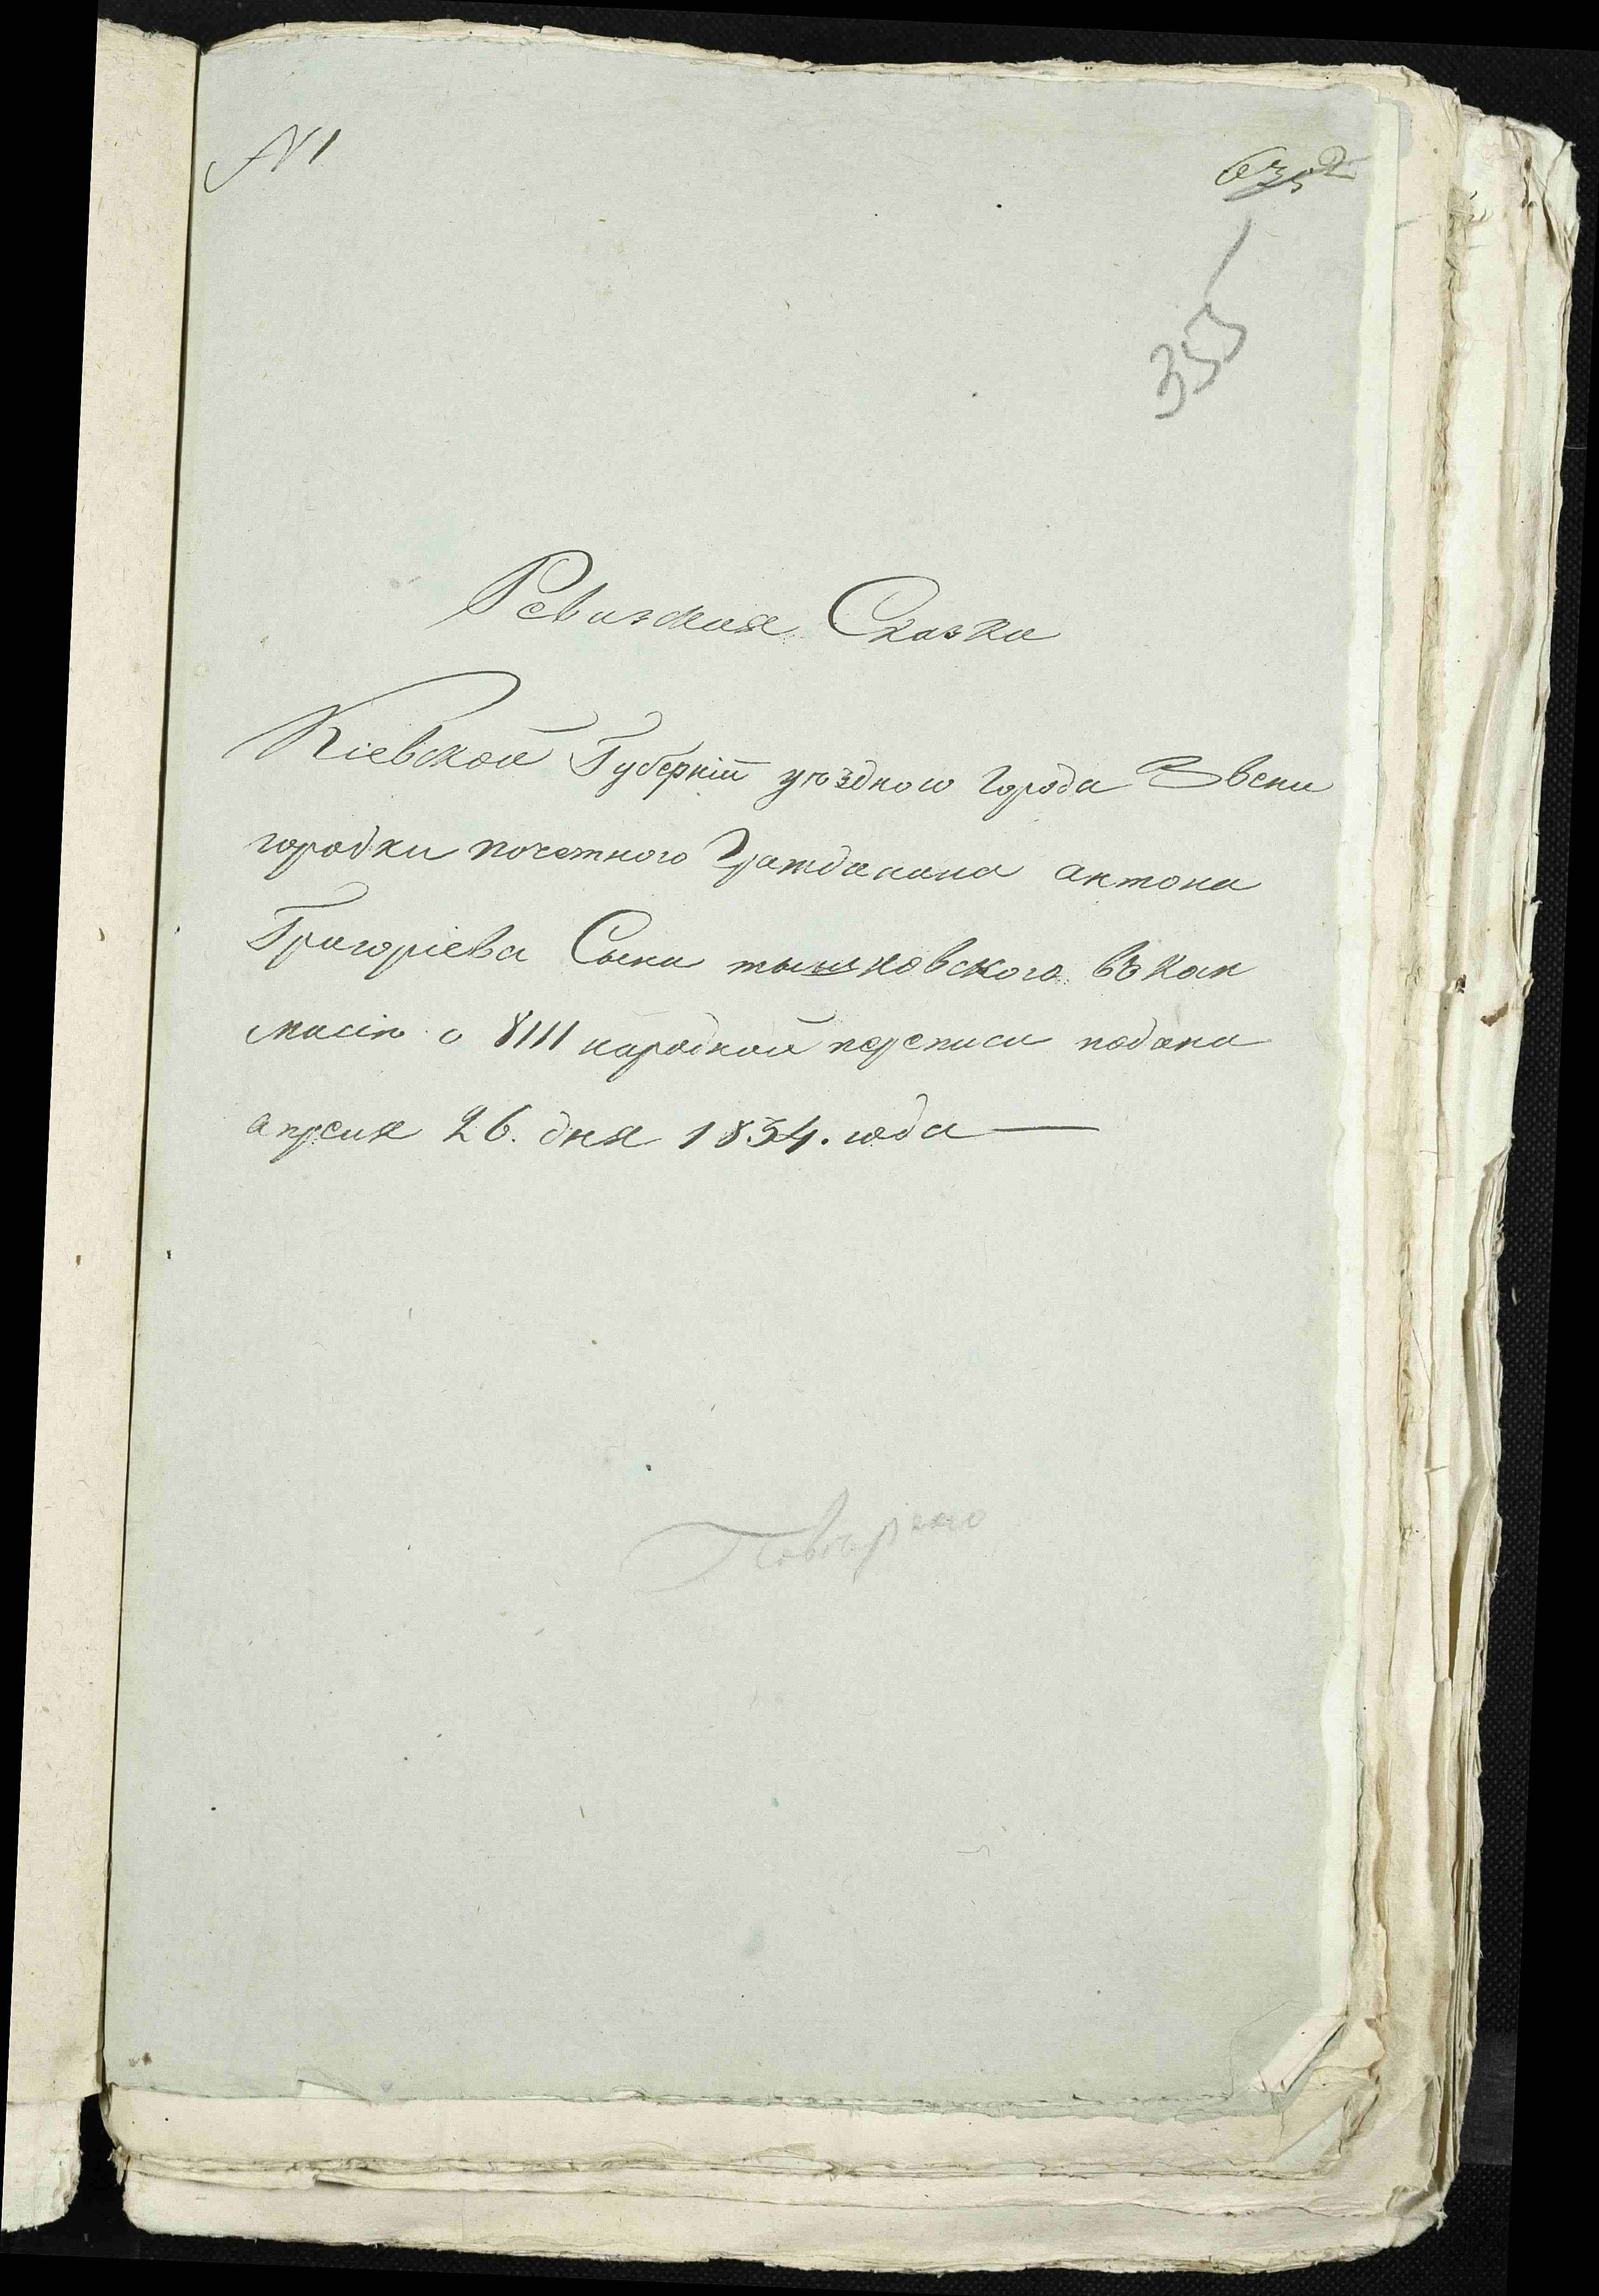 N 1
355
Ревизкая Сказка
Кіевской Губерніи уѣздного города Звени
городки почетного Гражданина антона
Григоріева Сына тышковского въ кан
масію о 8111 народной переписи подана
апреля 26. дня 1834. года —
Поверено